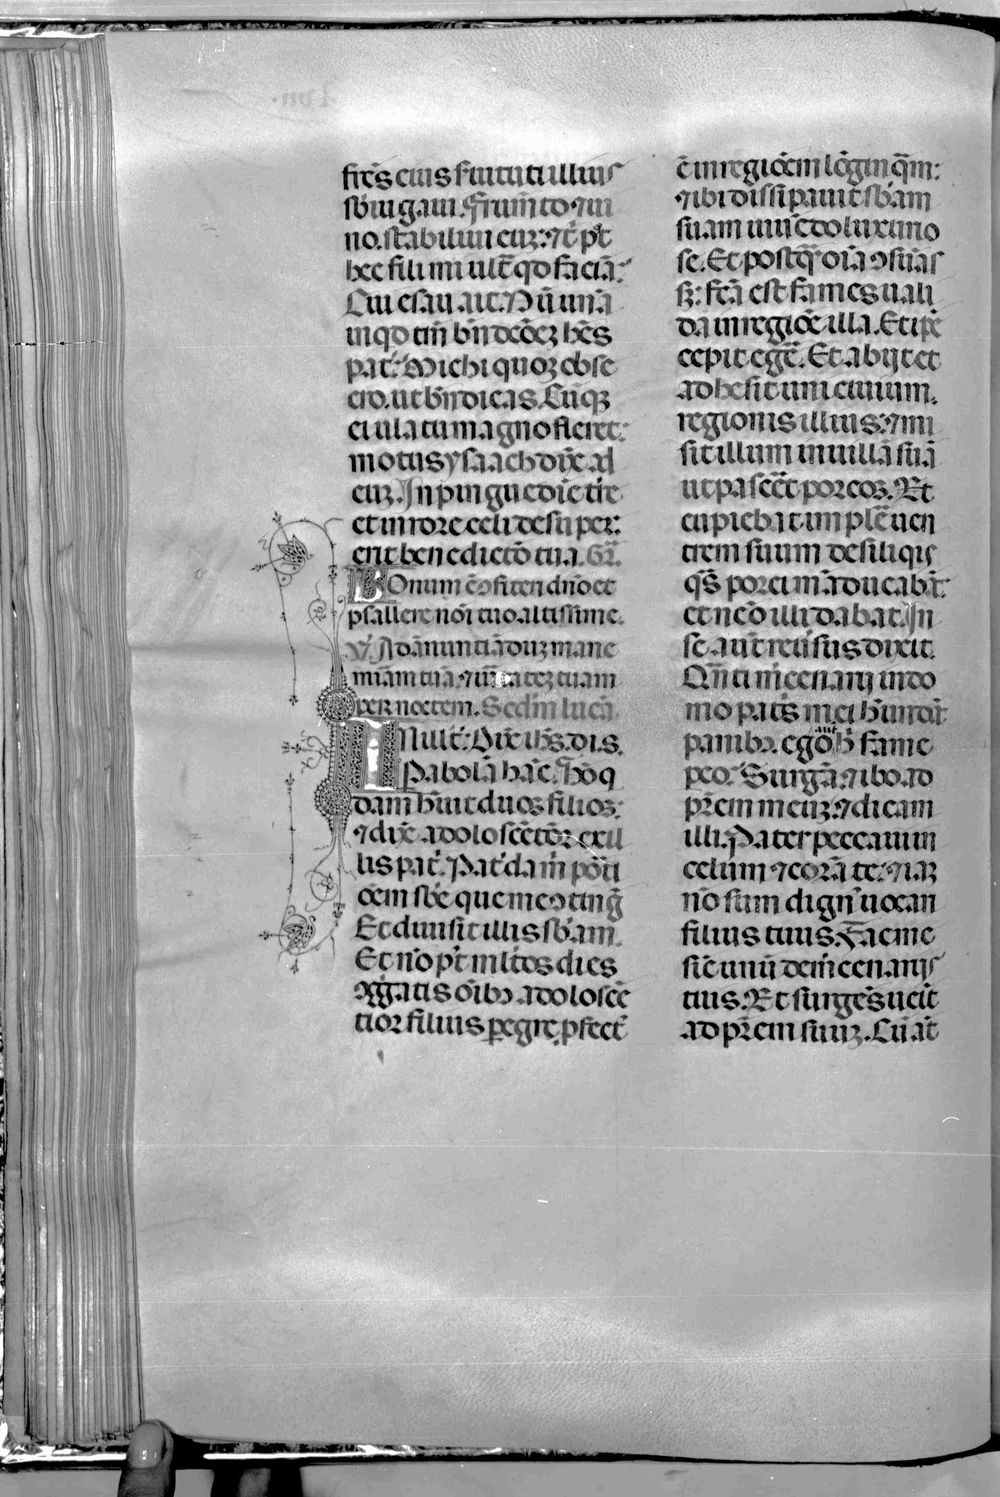 fr̃es eius s̃uituti illius
sb̾iugaui. Frum̃to ⁊ ui
no. stabiliui euꝫ: ⁊ t̾ pꝰt
hec fili mi ult̃ qͥd faciã:
Cui esau ait. Nũ unã
inqͥd tm̃ bñdcõeꝫ hẽs
pat̾: Michi quoꝫ obse
cro. ut bñdicas. Cũqꝫ
eiulatu magno fleret:
motus ysaach dix̃ ad
euꝫ. In pinguedĩe t̾re
et in rore celi desuper:
erit benedictõ tua. Gr̃.
Bonum ẽ ↄfiteri dño et
psallere noĩ tuo altissime.
℣. Ad ãnunciãduꝫ mane
miãm tuã. ⁊ u̾itateꝫ tuam
per noctem. Secd̃m lucã.
In illt̾. Dix̃ ih̃s. dis.
Pabolã hãc. Hõ qͥ
dam h̃uit duos filios:
⁊ dix̃ adolescẽcior ex il
lis pat̾. Pat̾ da m̃ porti
oẽm sb̾e que me ↄtingͥt
Et diuisit illis sb̾am.
Et nõ pꝰt m̃ltos dies
ↄg̾gatis oĩbꝫ adolescẽ
tior filius pegre pfect̾
ẽ in regioẽm lõginqͣm:
⁊ ibi dissipauit sb̾am
suam uiuẽdo luxurio
se. Et postqͣ oĩa ↄsũas
sꝫ: fcã est fames uali
da in regiõe illa. Et ip̃e
cepit egẽ. Et abijt et
adhesit uni ciuium.
regionis illius: ⁊ mi
sit illum in uillã suã
ut pascẽt porcos. Et
cupiebat implẽ uen
trem suum de siliqis
qͣs porci mãducabãt:
et nẽo illi dabat. In
se aut̃ reũsus dixit.
Qñti m̾cenarij in do
mo pat̾s mei h̃undãt
panibꝫ. ego aũt h̾ fame
peo. Surgã. ⁊ ibo ad
pr̃em meuꝫ. ⁊ dicam
illi. Pater peccaui in
celum ⁊ corã te: ⁊ iaꝫ
nõ sum dignꝰ uocari
filius tuus. Fac me
sic̃ unũ de m̾cenarijs
tuis. Et surgẽs ueĩt
ad pr̃em suuꝫ. Cũ aũt